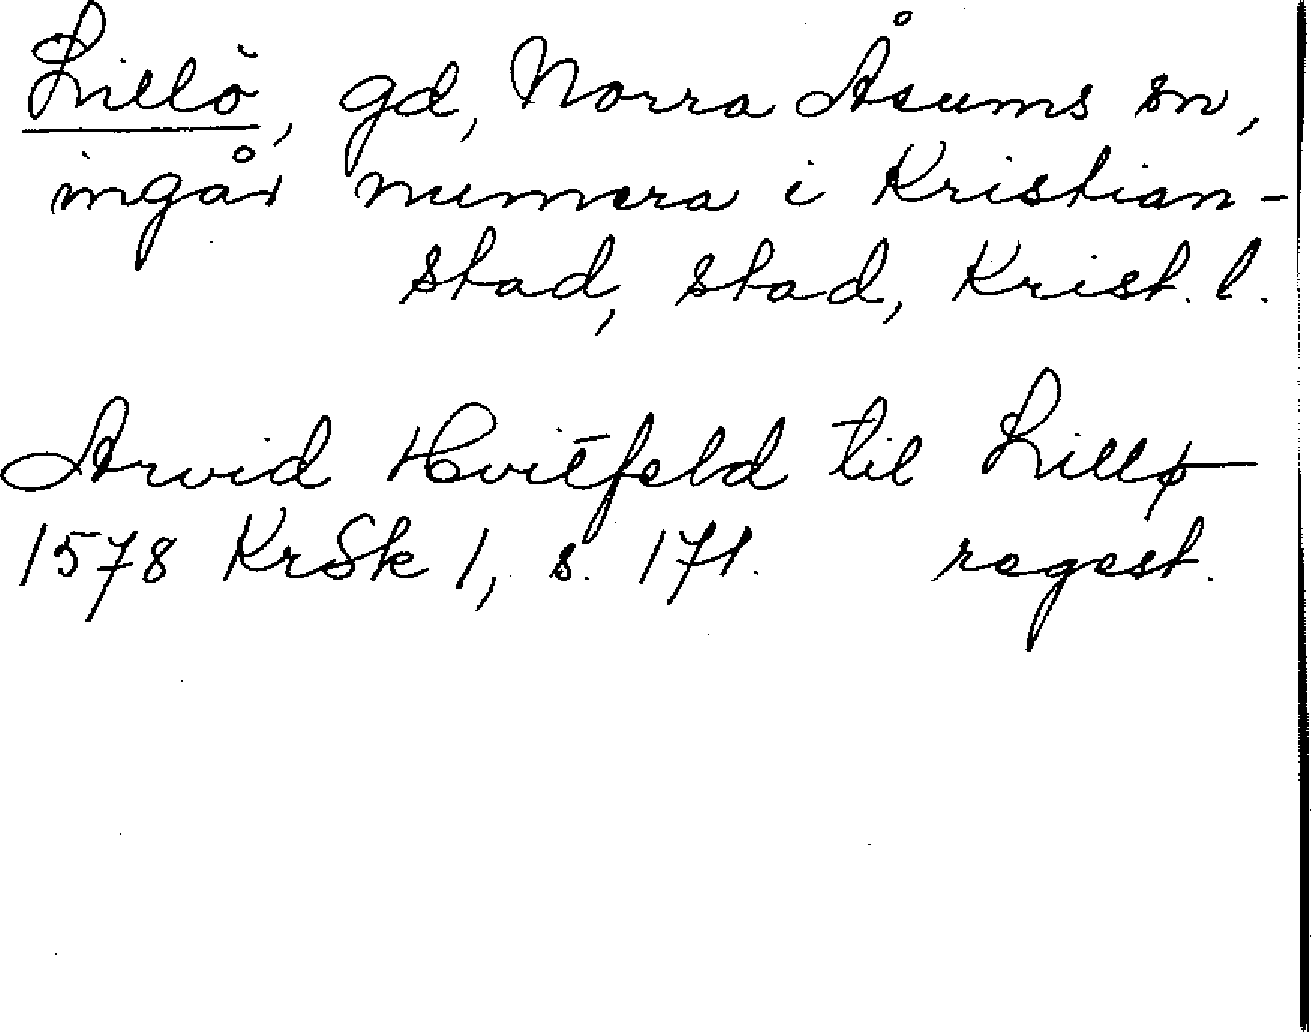 Lillö, gd, Norra Åsums sn,
ingår numera i Kristian-
stad, stad, Krist. l.
Arvid Hvitfeld til Lillø
1578 KrSk 1, s. 171. regest.